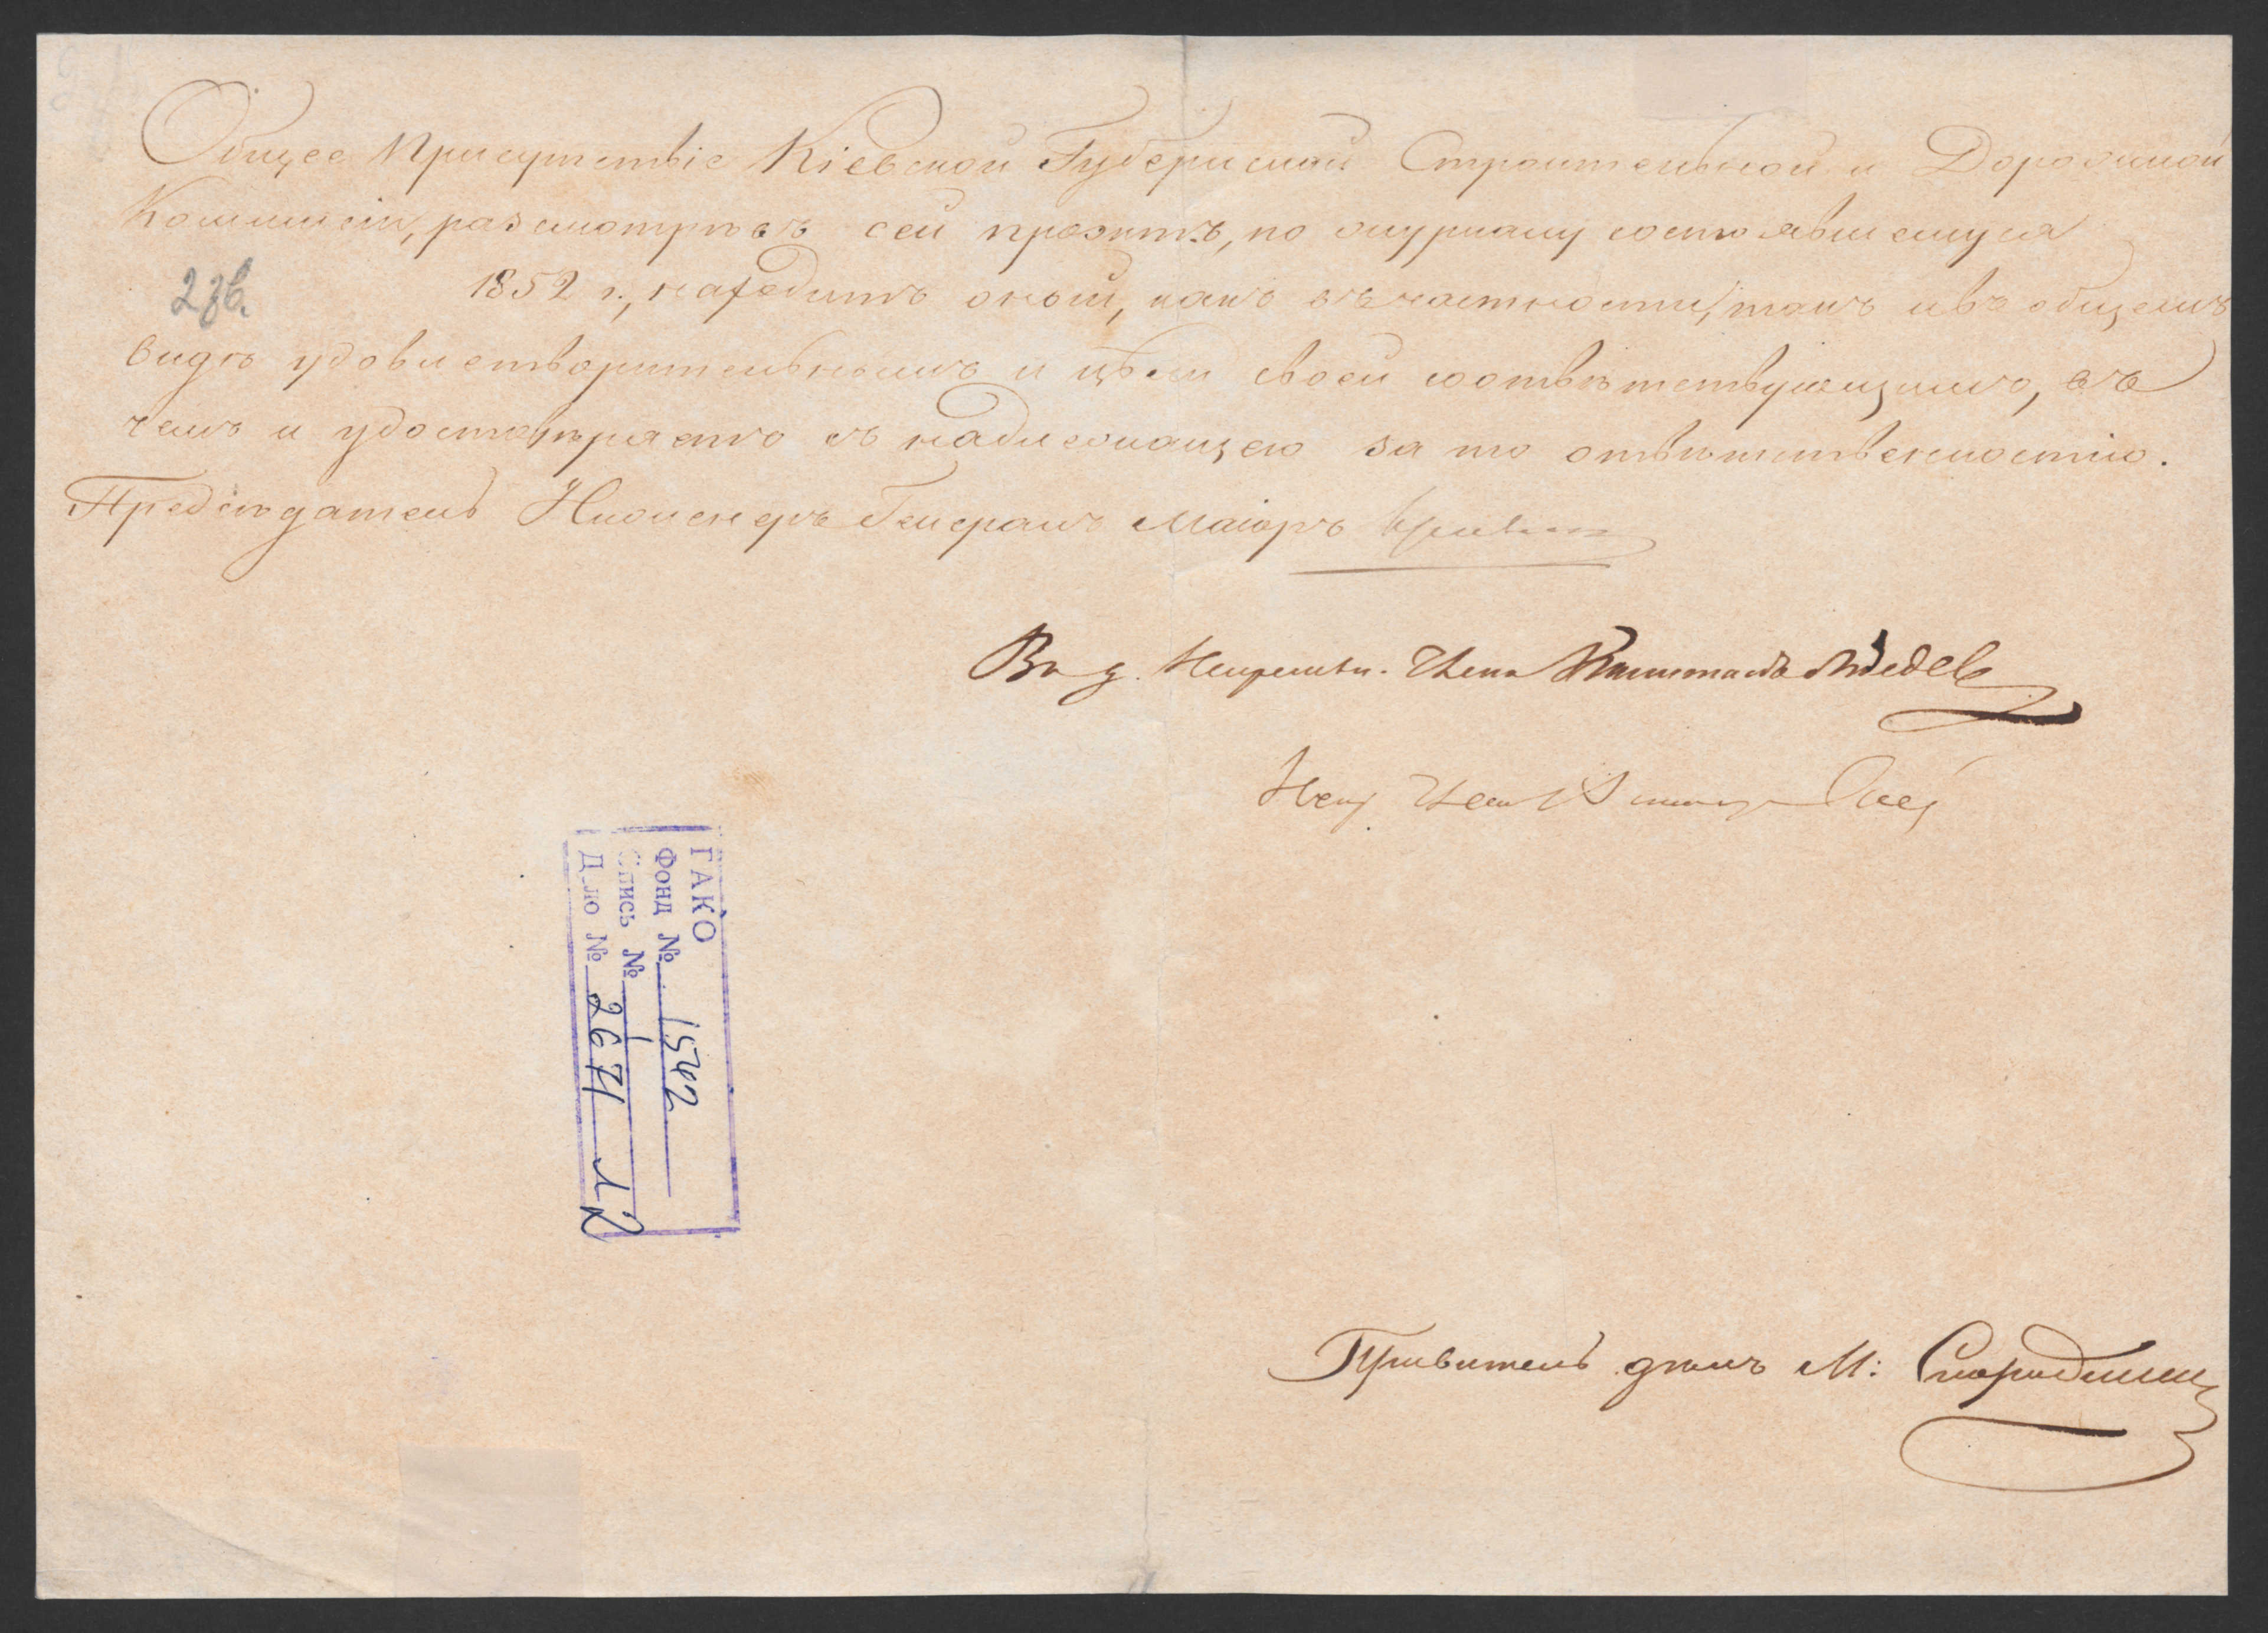 Общее Присутствіе Кіевской Губернской Строительной и Дорожной
Коммисіи, разсмотрѣвъ сей проэктъ, по журналу состоявшемуся
2зв.
1852 г., находитъ оный, какъ въ частности, такъ и въ общемъ
видѣ удовлетворительнымъ и цѣли своей соотвѣтствующимъ, въ
чемъ и удостовѣряетъ съ надлежащею за то отвѣтственностію.
Предсѣдатель Инженеръ Генералъ Маіоръ
Непремѣн. Членъ Капитанъ
Непр Членъ
ГАКО
Фонд № 1542
Опись № 1
Дело № 2671 л 2
Правитель дѣлъ М: